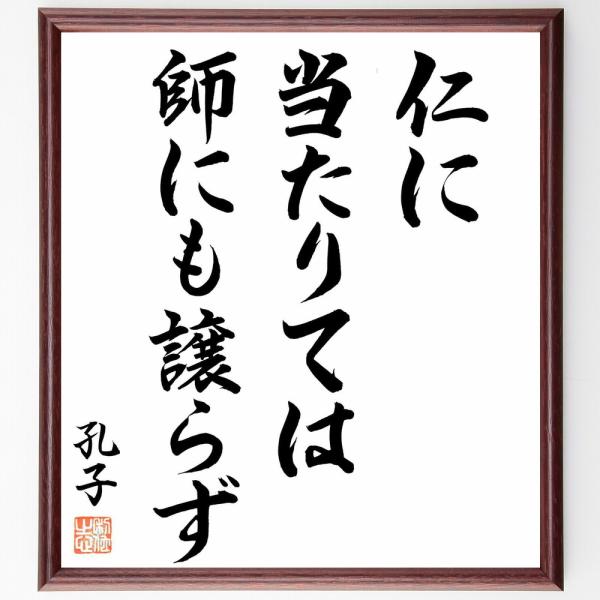 仁に
当たりては
師にも譲らず
孔子